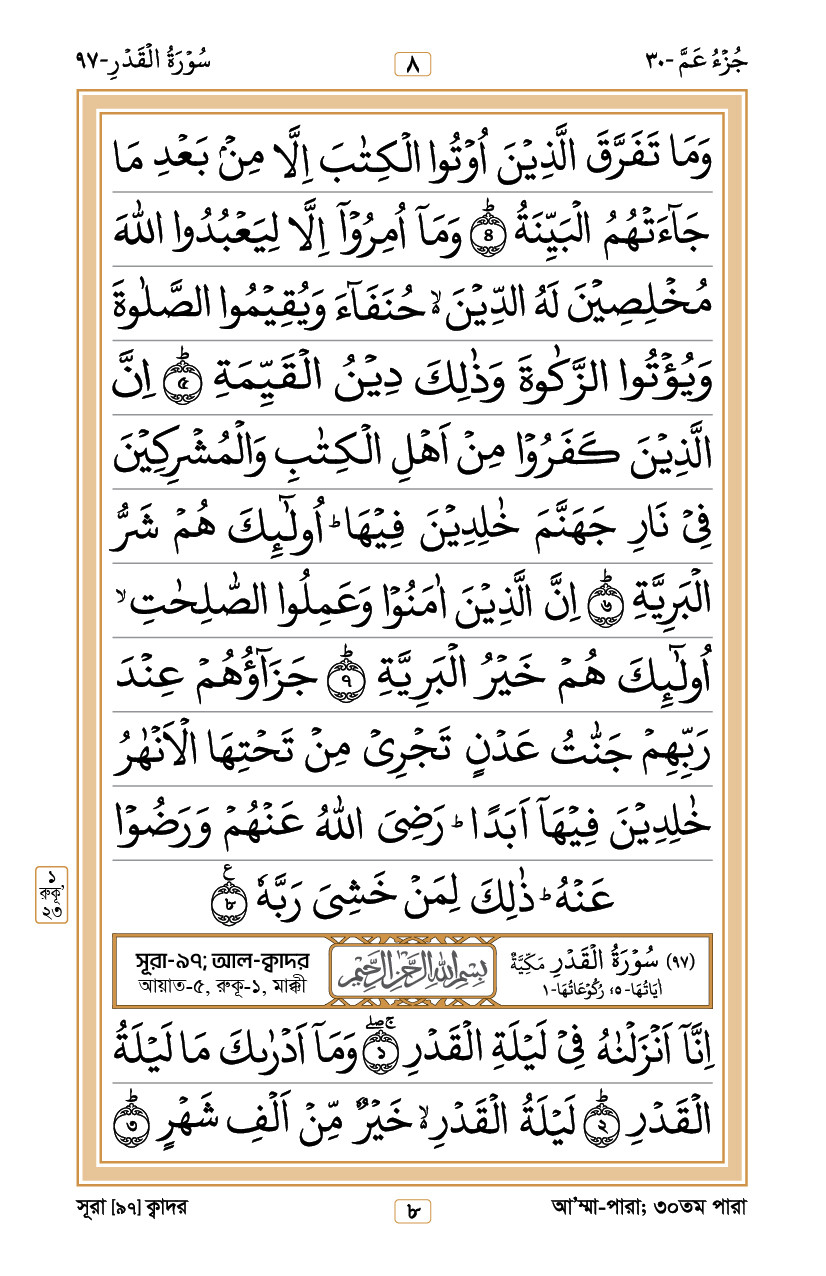 جُزْءُ عَمَّ -٣٠
٨
سُوْرَةُ الْقَدْرِ-٩٧
وَمَا تَفَرَّقَ الَّذِيْنَ اُوْتُوا الْكِتٰبَ اِلَّا مِنْۢ بَعْدِ مَا
جَآءَتْهُمُ الْبَيِّنَةُ ؕ ﴿৪﴾ وَمَآ اُمِرُوْٓا اِلَّا لِيَعْبُدُوا اللهَ
مُخْلِصِيْنَ لَهُ الدِّيْنَ ۙ حُنَفَآءَ وَيُقِيْمُوا الصَّلٰوةَ
وَيُؤْتُوا الزَّكٰوةَ وَذٰلِكَ دِيْنُ الْقَيِّمَةِ ؕ ﴿৫﴾ اِنَّ
الَّذِيْنَ كَفَرُوْا مِنْ اَهْلِ الْكِتٰبِ وَالْمُشْرِكِيْنَ
فِيْ نَارِ جَهَنَّمَ خٰلِدِيْنَ فِيْهَا ؕ اُولٰٓئِكَ هُمْ شَرُّ
الْبَرِيَّةِ ؕ ﴿৬﴾ اِنَّ الَّذِيْنَ اٰمَنُوْا وَعَمِلُوا الصّٰلِحٰتِ ۙ
اُولٰٓئِكَ هُمْ خَيْرُ الْبَرِيَّةِ ؕ ﴿৭﴾ جَزَآؤُهُمْ عِنْدَ
رَبِّهِمْ جَنّٰتُ عَدْنٍ تَجْرِيْ مِنْ تَحْتِهَا الْاَنْهٰرُ
خٰلِدِيْنَ فِيْهَآ اَبَدًا ؕ رَضِيَ اللهُ عَنْهُمْ وَرَضُوْا
عَنْهُ ؕ ذٰلِكَ لِمَنْ خَشِيَ رَبَّهٗ ﴿৮﴾ ع
১
রুকূ'
২৩
(٩٧) سُوْرَةُ الْقَدْرِ مَكِّيَّةٌ
اٰيَاتُهَا-٥، رُكُوْعَاتُهَا-١
بِسْمِ اللهِ الرَّحْمٰنِ الرَّحِيْمِ
সূরা-৯৭; আল-ক্বাদর
আয়াত-৫, রুকূ-১, মাক্কী
اِنَّآ اَنْزَلْنٰهُ فِيْ لَيْلَةِ الْقَدْرِ ۚۖ ﴿১﴾ وَمَآ اَدْرٰىكَ مَا لَيْلَةُ
الْقَدْرِ ؕ ﴿২﴾ لَيْلَةُ الْقَدْرِ ۙ خَيْرٌ مِّنْ اَلْفِ شَهْرٍ ؕ ﴿৩﴾
সূরা [৯৭] ক্বাদর
৮
আ'ম্মা-পারা; ৩০তম পারা